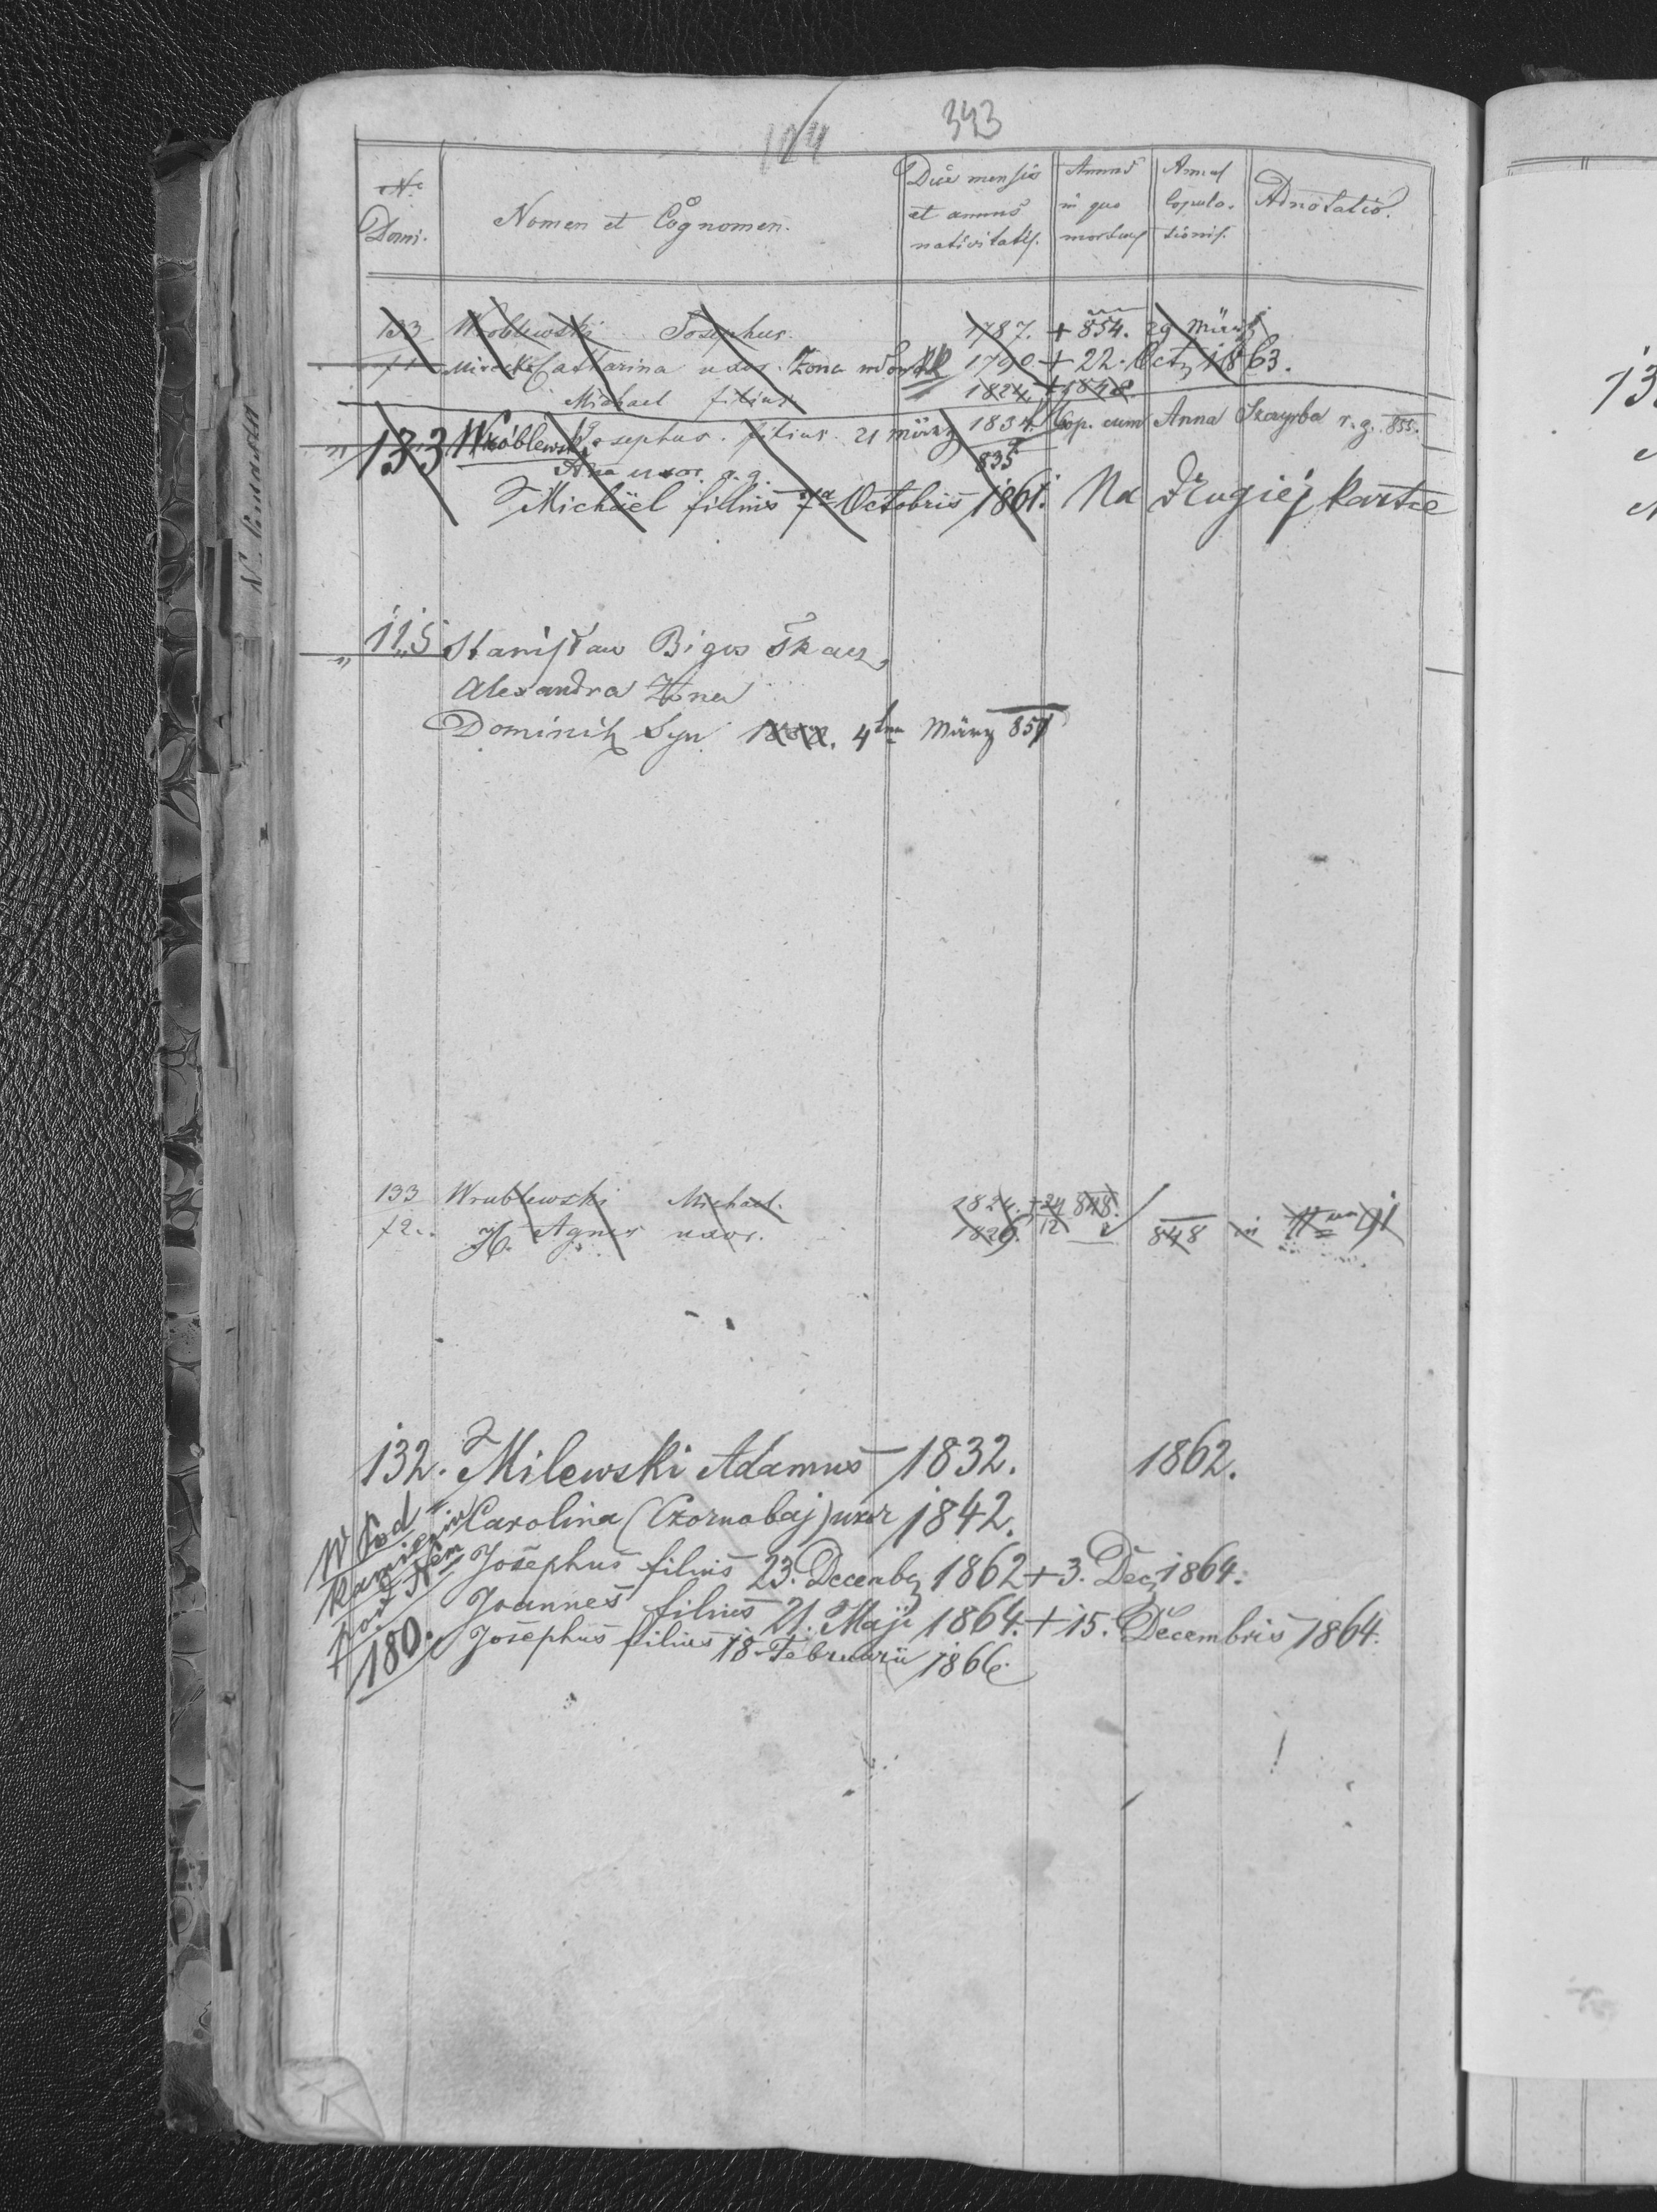 343
104
Nº Domi.
Nomen et Cognomen.
Dies mensis et annus nativitatis.
Annus in quo mortuus
Annus Copulationis.
Adnotatio.
133 Wroblewski Josephus. 1787. + 854. 29 März
f1 Catharina uxor. Żona 1790 + 22. Oct 1863.
Michael filius 1824 + 1848
133 Wróblewski Josephus. filius. 21 März 1834. Cop. cum Anna Szczyrba r. g. 855.
Ana uxor. g. g. 835
Michäel filius 7a Octobris 1861. Na drugiéj kartce
115 Stanisław Bigos Tkacz,
Alexandra Żona
Dominik Syn 4ten März 851
133 Wrublewski Michael. 1824. + 24 848.
f2. Agnes uxor. 1826. 12 848 in
132. Milewski Adamus 1832. 1862.
Carolina (Czornobaj) uxor 1842.
Josephus filius 23. Decemb 1862 + 3. Dec 1864.
Joannes filius 21. Maji 1864. + 15. Decembris 1864.
Josephus filius 18. Februarii 1866.
W Pod
kamieniu
pod Nem
180.